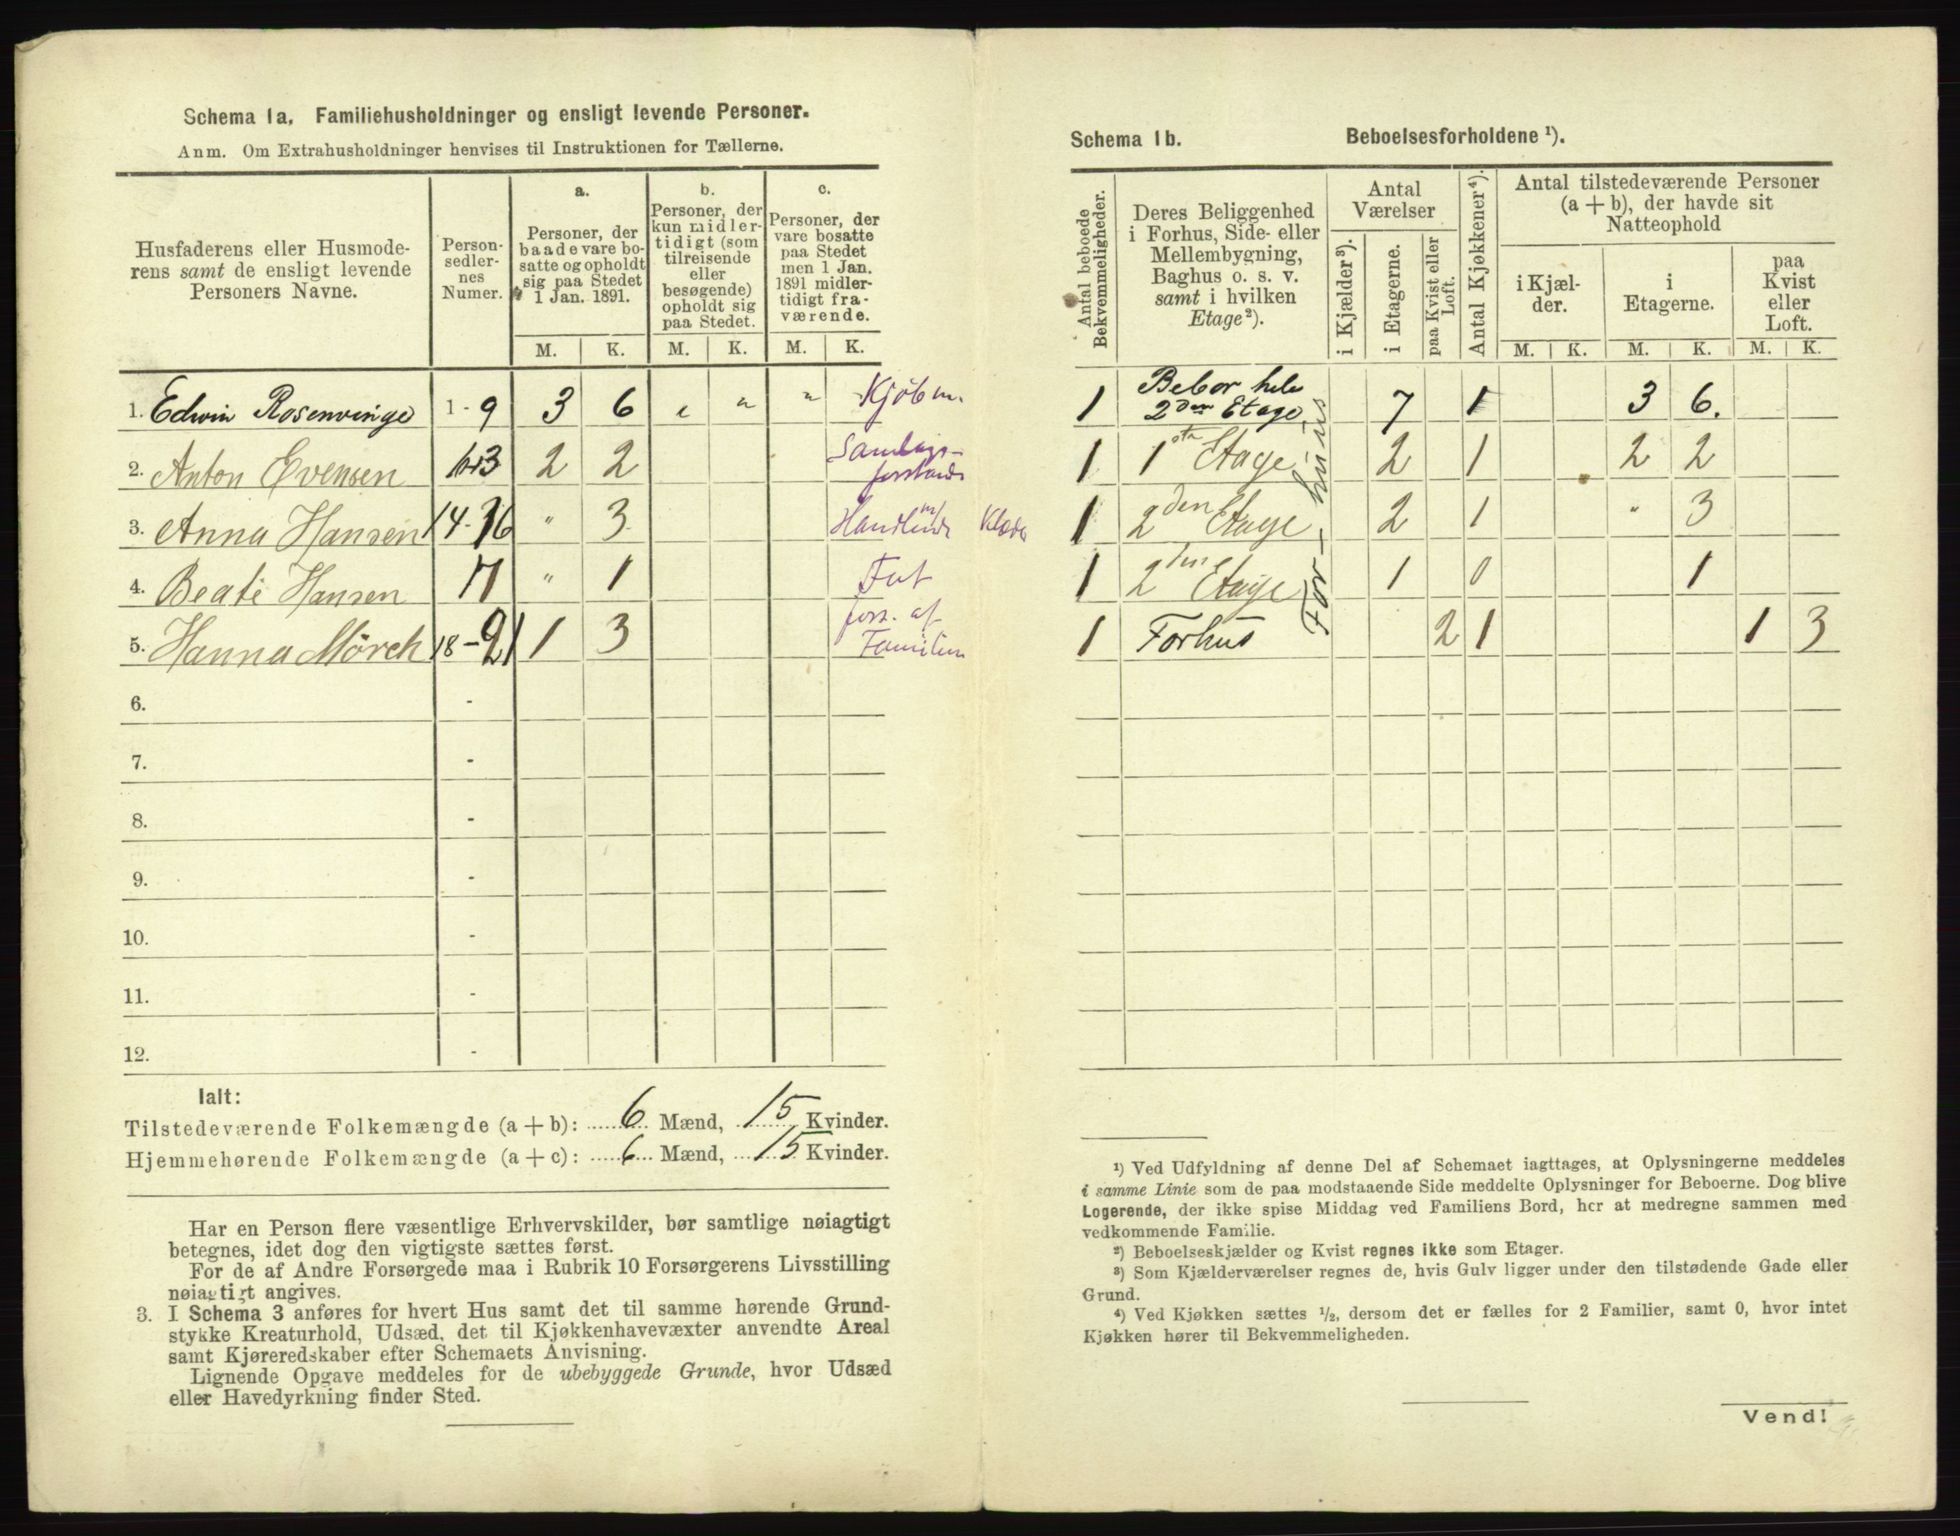 Schema 1a. Familiehusholdninger og ensligt levende Personer.
Anm. Om Extrahusholdninger henvises til Instruktionen for Tællerne.
Husfaderens eller Husmode-
rens samt de ensligt levende
Personers Navne.
Person-
sedler-
nes
Numer.
a.
Personer, der
baade vare bo-
satte og opholdt
sig paa Stedet
1 Jan. 1891.
b.
Personer, der
kun midler-
tidigt (som
tilreisende
eller
besøgende)
opholdt sig
paa Stedet.
c.
Personer, der
vare bosatte
paa Stedet
men 1 Jan.
1891 midler-
tidigt fra-
værende.
M. K. M. K. M. K.
1. Edwin Rosenvinge 1-9 3 6 " " " Kjøbm.
2. Anton Evensen 2 2 Samlags-
3. Anna Hansen 14-16 " 3
4. Beate Hansen 17 " 1
5. Hanna Mörch 18-21 1 3 fors. af
Familien
6. -
7. -
8. -
9. -
10. -
11. -
12. -
Ialt:
Tilstedeværende Folkemængde (a + b): 6 Mænd, 15 Kvinder.
Hjemmehørende Folkemængde (a + c): 6 Mænd, 15 Kvinder.
Har en Person flere væsentlige Erhvervskilder, bør samtlige nøiagtigt
betegnes, idet dog den vigtigste sættes først.
For de af Andre Forsørgede maa i Rubrik 10 Forsørgerens Livsstilling
nøiagtigt angives.
3. I Schema 3 anføres for hvert Hus samt det til samme hørende Grund-
stykke Kreaturhold, Udsæd, det til Kjøkkenhavevæxter anvendte Areal
samt Kjøreredskaber efter Schemaets Anvisning.
Lignende Opgave meddeles for de ubebyggede Grunde, hvor Udsæd
eller Havedyrkning finder Sted.
Schema 1b. Beboelsesforholdene ¹).
Antal beboede
Bekvemmeligheder.
Deres Beliggenhed
i Forhus, Side- eller
Mellembygning,
Baghus o. s. v.
samt i hvilken
Etage²).
Antal
Værelser
i Kjælder³).
i Etagerne.
paa Kvist eller
Loft.
Antal Kjøkkener⁴).
Antal tilstedeværende Personer
(a + b), der havde sit
Natteophold
i Kjæl-
der.
i
Etagerne.
paa
Kvist
eller
Loft.
M. K. M. K. M. K.
1 Bebor hele
2den Etage 7 1 3 6.
1 1ste Etage 2 1 2 2
1 2den Etage 2 1 " 3
1 2den Etage 1 0 1
1 Forhus 2 1 1 3
For-huus
¹) Ved Udfyldning af denne Del af Schemaet iagttages, at Oplysningerne meddeles
i samme Linie som de paa modstaaende Side meddelte Oplysninger for Beboerne. Dog blive
Logerende, der ikke spise Middag ved Familiens Bord, her at medregne sammen med
vedkommende Familie.
²) Beboelseskjælder og Kvist regnes ikke som Etager.
³) Som Kjælderværelser regnes de, hvis Gulv ligger under den tilstødende Gade eller
Grund.
⁴) Ved Kjøkken sættes ½, dersom det er fælles for 2 Familier, samt 0, hvor intet
Kjøkken hører til Bekvemmeligheden.
Vend!